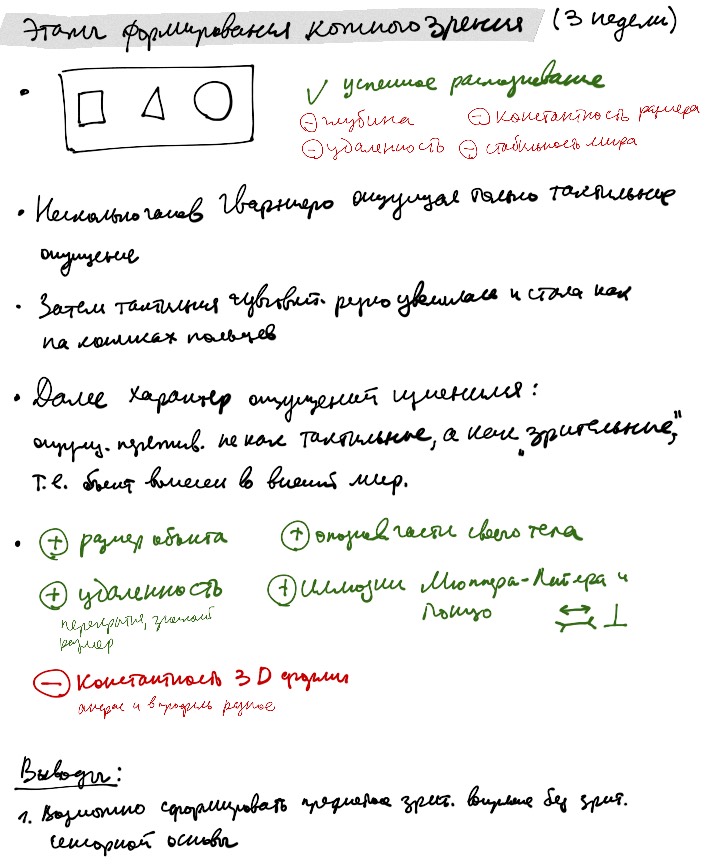 Этапы формирования кожного зрения (3 недели)
✓ успешное распознавание
⊖ глубина ⊖ константность размера
⊖ удаленность ⊖ стабильность мира
• Несколько часов Гварниеро ощущал только тактильные
ощущения
• Затем тактильная чувствит. резко увелилась и стала как
на кончиках пальцев
• Далее характер ощущений изменился:
ощущ. пережив. не как тактильные, а как "зрительные",
т.е. объект вынесен во внешний мир.
• ⊕ размер объекта ⊕ опознав части своего тела
⊕ удаленность ⊕ Иллюзии Мюллера-Лайера и
Понцо
перекрытия, знакомый
размер
⊖ Константность 3D формы
анфас и в профиль разное
Выводы:
1. Возможно сформировать предметное зрит. восприятие без зрит.
сенсорной основы